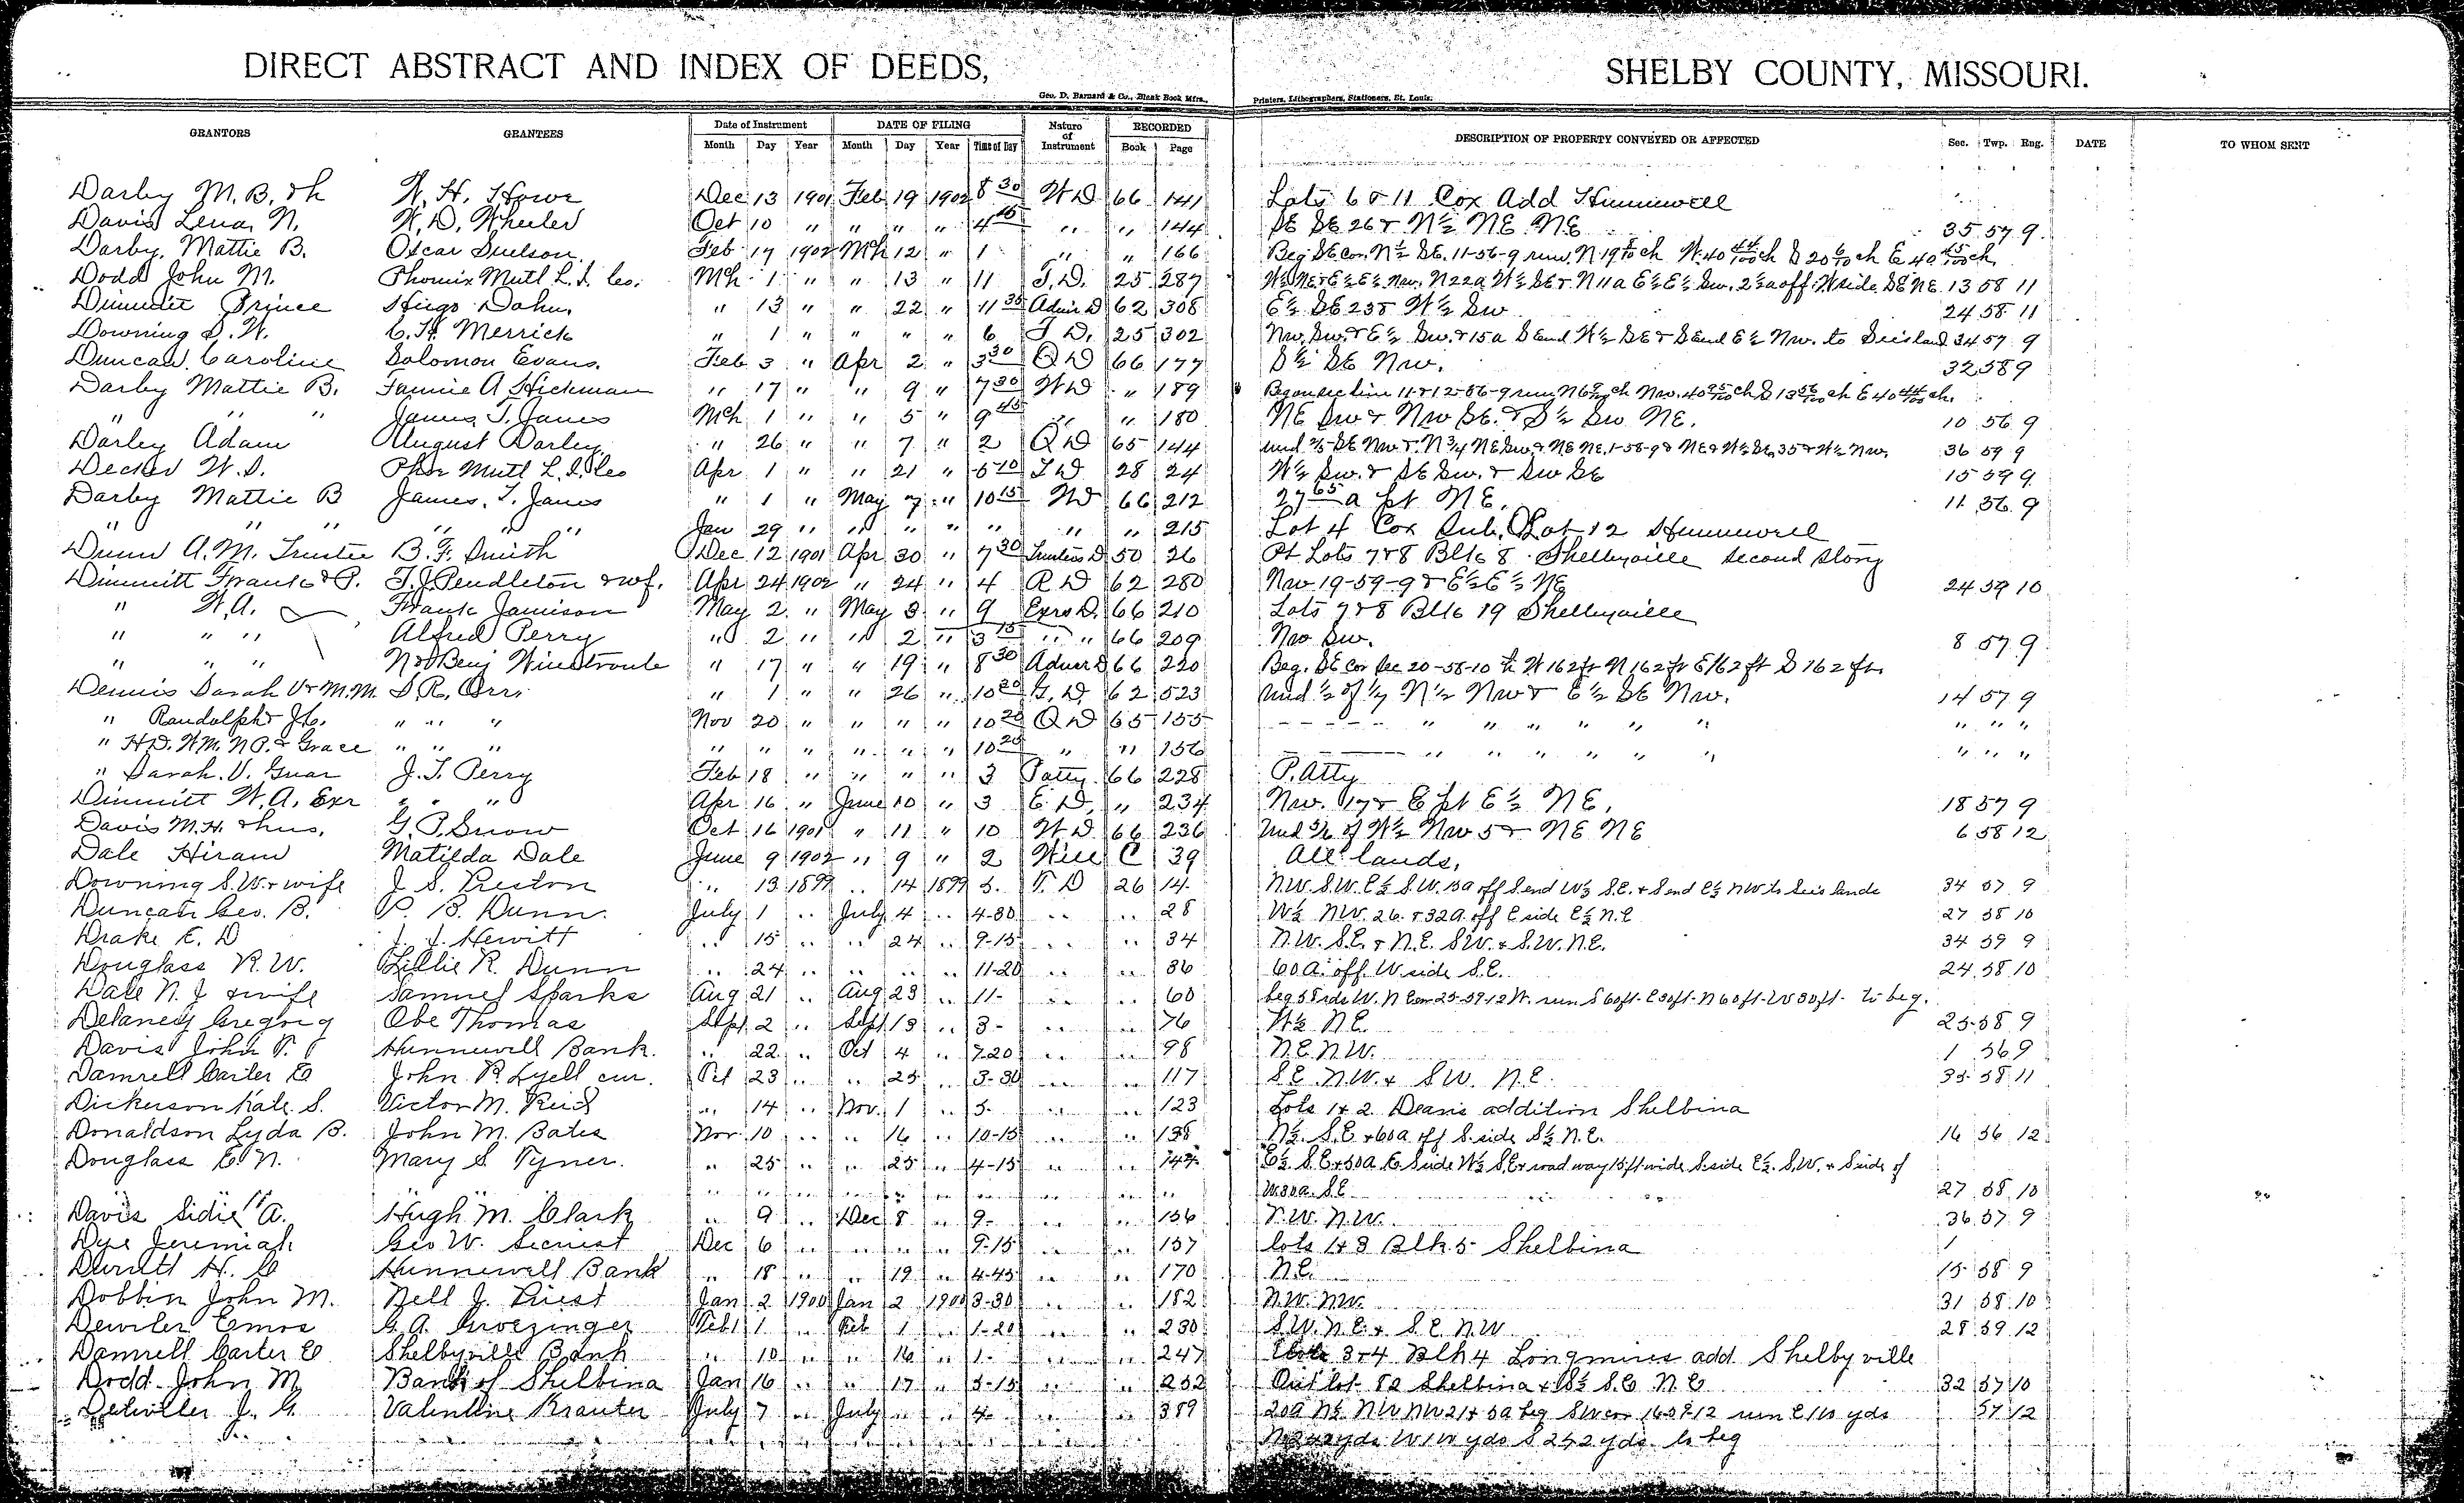 DIRECT ABSTRACT AND INDEX OF DEEDS, SHELBY COUNTY, MISSOURI.
Geo. D. Barnard & Co., Blank Book Mfrs., Printers, Lithographers, Stationers, St. Louis.
GRANTORS GRANTEES Date of Instrument DATE OF FILING Nature of Instrument RECORDED DESCRIPTION OF PROPERTY CONVEYED OR AFFECTED Sec. Twp. Rng. DATE TO WHOM SENT
Month Day Year Month Day Year Time of Day Book Page
Darby M. B. & h W. H. Howe Dec 13 1901 Feb 19 1902 8 30 W D 66 141 Lots 6 & 11 Cox Add Hunnewell
Davis Lena N. W. D. Wheeler Oct 10 " " " " " 4 45 " " 144 SE SE 26 & N½ NE NE 35 57 9
Darby, Mattie B. Oscar Suelson. Feb 17 1902 Mch 12 " 1 " " 166 Beg SE cor. N½ SE. 11-56-9 run N 19 ch W. 40 44/100 ch S 20 ch E 40 45/100 ch.
Dodd John M. Phoenix Mutl L. I. Co. Mch 1 " " 13 " 11 T. D. 25 287 W½ NE & E½ E½ Nw. N 22a W½ SE & N 11a E½ E½ Sw. 2½ a off W side SE NE. 13 58 11
Dimmitt Prince Hugo Dahn. " 13 " " 22 " 11 35 Admr D 62 308 E½ SE 23 & W½ Sw 24 58 11
Downing S. W. C. H. Merrick " 1 " " " " 6 T D. 25 302 Nw Sw. & E½ Sw. & 15a S end W½ SE & S end E½ Nw. to 34 57 9
Duncan Caroline Solomon Evans. Feb 3 " Apr 2 " 3 30 Q D 66 177 S½ SE Nw. 32 58 9
Darby Mattie B. Fannie A Hickman " 17 " " 9 " 7 30 W D " 189 Beg on sec line 11 & 12-56-9 run N 6 ch Nw. 40 95/100 ch S 13 56/100 ch E 40 44/100 ch.
" " " James T. Janes Mch 1 " " 5 " 9 45 " " 180 NE Sw & Nw SE. & S½ Sw NE. 10 56 9
Darley Adam August Darley " 26 " " 7 " 2 Q D 65 144 und SE Nw & N ¾ NE Sw. & NE NE. 1-58-9 & NE & W½ SE. 35 & W½ Nw. 36 59 9
Decker W. S. Phor Mutl L. I. Co Apr 1 " " 21 " 5 10 T D 28 24 W½ Sw. & SE Sw. & Sw SE 15 59 9
Darby Mattie B James. T. Janes " 1 " May 7 " 10 15 W D 66 212 27 65 a pt NE. 11 56 9
" " " " " " Jan 29 " " " " " " " 215 Lot 4 Cox Sub. Lot 12 Hunnewell
Dunn A. M. Trustee B. F. Smith Dec 12 1901 Apr 30 " 7 30 Trustees D 50 26 Pt Lots 7 & 8 Blk 8 Shelbyville second story
Dimmitt Frank & P. T. J. Pendleton & wf. Apr 24 1902 " 24 " 4 R D 62 280 Nw 19-59-9 & E½ E½ NE 24 59 10
" W. A. Frank Jamison May 2 " May 3 " 9 Exrs D. 66 210 Lots 7 & 8 Blk 19 Shelbyville
" " " Alfred Perry " 2 " " 2 " 3 15 " " 66 209 Nw Sw. 8 57 9
" " " " 17 " " 19 " 8 30 66 220 Beg. SE Cor Sec 20-58-10 th W 162 ft N 162 ft E 162 ft S 162 ft.
Dennis Sarah V & M. M. S. R. Orr. " 1 " " 26 " 10 20 G. D. 62 523 und ½ of 1/7 N½ Nw & E½ SE Nw. 14 57 9
" Randolph & J. C. " " " Nov 20 " " " " 10 20 Q D 65 155 - - - - " " " " " " " " "
" H. D. W. M. N. P. & Grace " " " " " " " " " 10 20 " " 156 - - - - " " " " " " " " "
" Sarah. V. Guar J. T. Perry Feb 18 " " " " 3 Patty 66 228 P. Atty
Dimmitt W. A. Exr " " " Apr 16 " June 10 " 3 E. D. " 234 Nw. 17 & E pt E½ NE. 18 57 9
Davis M. H. & hus. G. P. Snow Oct 16 1901 " 11 " 10 W D 66 236 Und 5/6 of W½ Nw 5 & NE NE 6 58 12
Dale Hiram Matilda Dale June 9 1902 " 9 " 2 Will C 39 All lands.
Downing S. W. & wife J. S. Preston " 13 1899 .. 14 1899 5. T. D 26 14 N.W. S.W. E½ S.W. 15a off S. end W½ S.E. & S end E½ NW to 34 57 9
Duncan Geo. B. P. B. Dunn. July 1 .. July 4 .. 4-30 .. .. 28 W½ NW. 26. & 32a. off E side E½ N.E 27 58 10
Drake E. D J. J. Hewitt .. 15 .. .. 24 .. 9-15 .. .. 34 N.W. S.E. & N.E. SW. & S.W. N.E. 34 59 9
Douglass R. W. Lillie R. Dunn .. 24 .. .. .. .. 11-20 .. .. 36 60 a. off W side S.E. 24 58 10
Dale N. J & wife Samuel Sparks Aug 21 .. Aug 23 .. 11- .. .. 60 beg 58 rds W. N E cor 25-59-12 W. run S 60 ft. E 50 ft. N 60 ft. W 50 ft. to beg.
Delaney Gregory Obe Thomas Sept 2 .. Sept 13 .. 3- .. .. 76 W½ N.E. 25 58 9
Davis John T. Hunnewell Bank. .. 22 .. Oct 4 .. 7-20 .. .. 98 N.E. N.W. 1 56 9
Damrell Carter E John R. Lyell cur. Oct 23 .. .. 25 .. 3-30 .. .. 117 S.E. N.W. & SW. N.E. 35 58 11
Dickerson Kate. S. Victor M. Reid .. 14 .. Nov. 1 .. 5. .. .. 123 Lots 1 & 2 Deans addition Shelbina
Donaldson Lyda B. John M. Bates Nov 10 .. .. 16 .. 10-15 .. .. 138 N½. S.E & 60a off S. side S½ N.E. 16 56 12
Douglass E. N. Mary S. Tyner. .. 25 .. .. 25 .. 4-15 .. .. 147 E½. S.E & 50a E. Side W½ S.E & road way 15 ft wide S. side E½. S.W. & S side of
.. .. .. .. .. .. .. .. .. .. W. 30a. S.E 27 58 10
Davis Sidie A. Hugh M. Clark .. 9 .. Dec 8 .. 9- .. .. 156 N.W. 36 57 9
Dye Jeremiah Geo W. Secrist Dec 6 .. .. .. .. 9-15 .. .. 157 lots 1 & 3 Blk 5 Shelbina
H. C Hunnewell Bank .. 18 .. .. 19 .. 4-45 .. .. 170 N.E. 15 58 9
Dobbin John M. Nell J. Priest Jan 2 1900 Jan 2 1900 3-30 .. .. 182 N.W. NW. 31 58 10
G. A. Groezinger Feb 1 .. Feb 1 .. 1-20 .. .. 230 S.W. N.E. & S.E. NW 28 59 12
Damrell Carter E Shelbyville Bank .. 10 .. .. 16 .. 1- .. .. 247 3 & 4 Blk 4 Longmires add. Shelbyville
Dodd John M Bank of Shelbina Jan 16 .. .. 17 .. 3-15 .. .. 252 Out lot 82 Shelbina & S.E N.E 32 57 10
Detwiller J. G. Valentine Krauter July 7 .. July .. .. 4- .. .. 389 20a N½ NW NW 21 & 5a beg SW cor 16 57 12 run E 110 yds 57 12
yds W 110 yds S 242 yds to beg